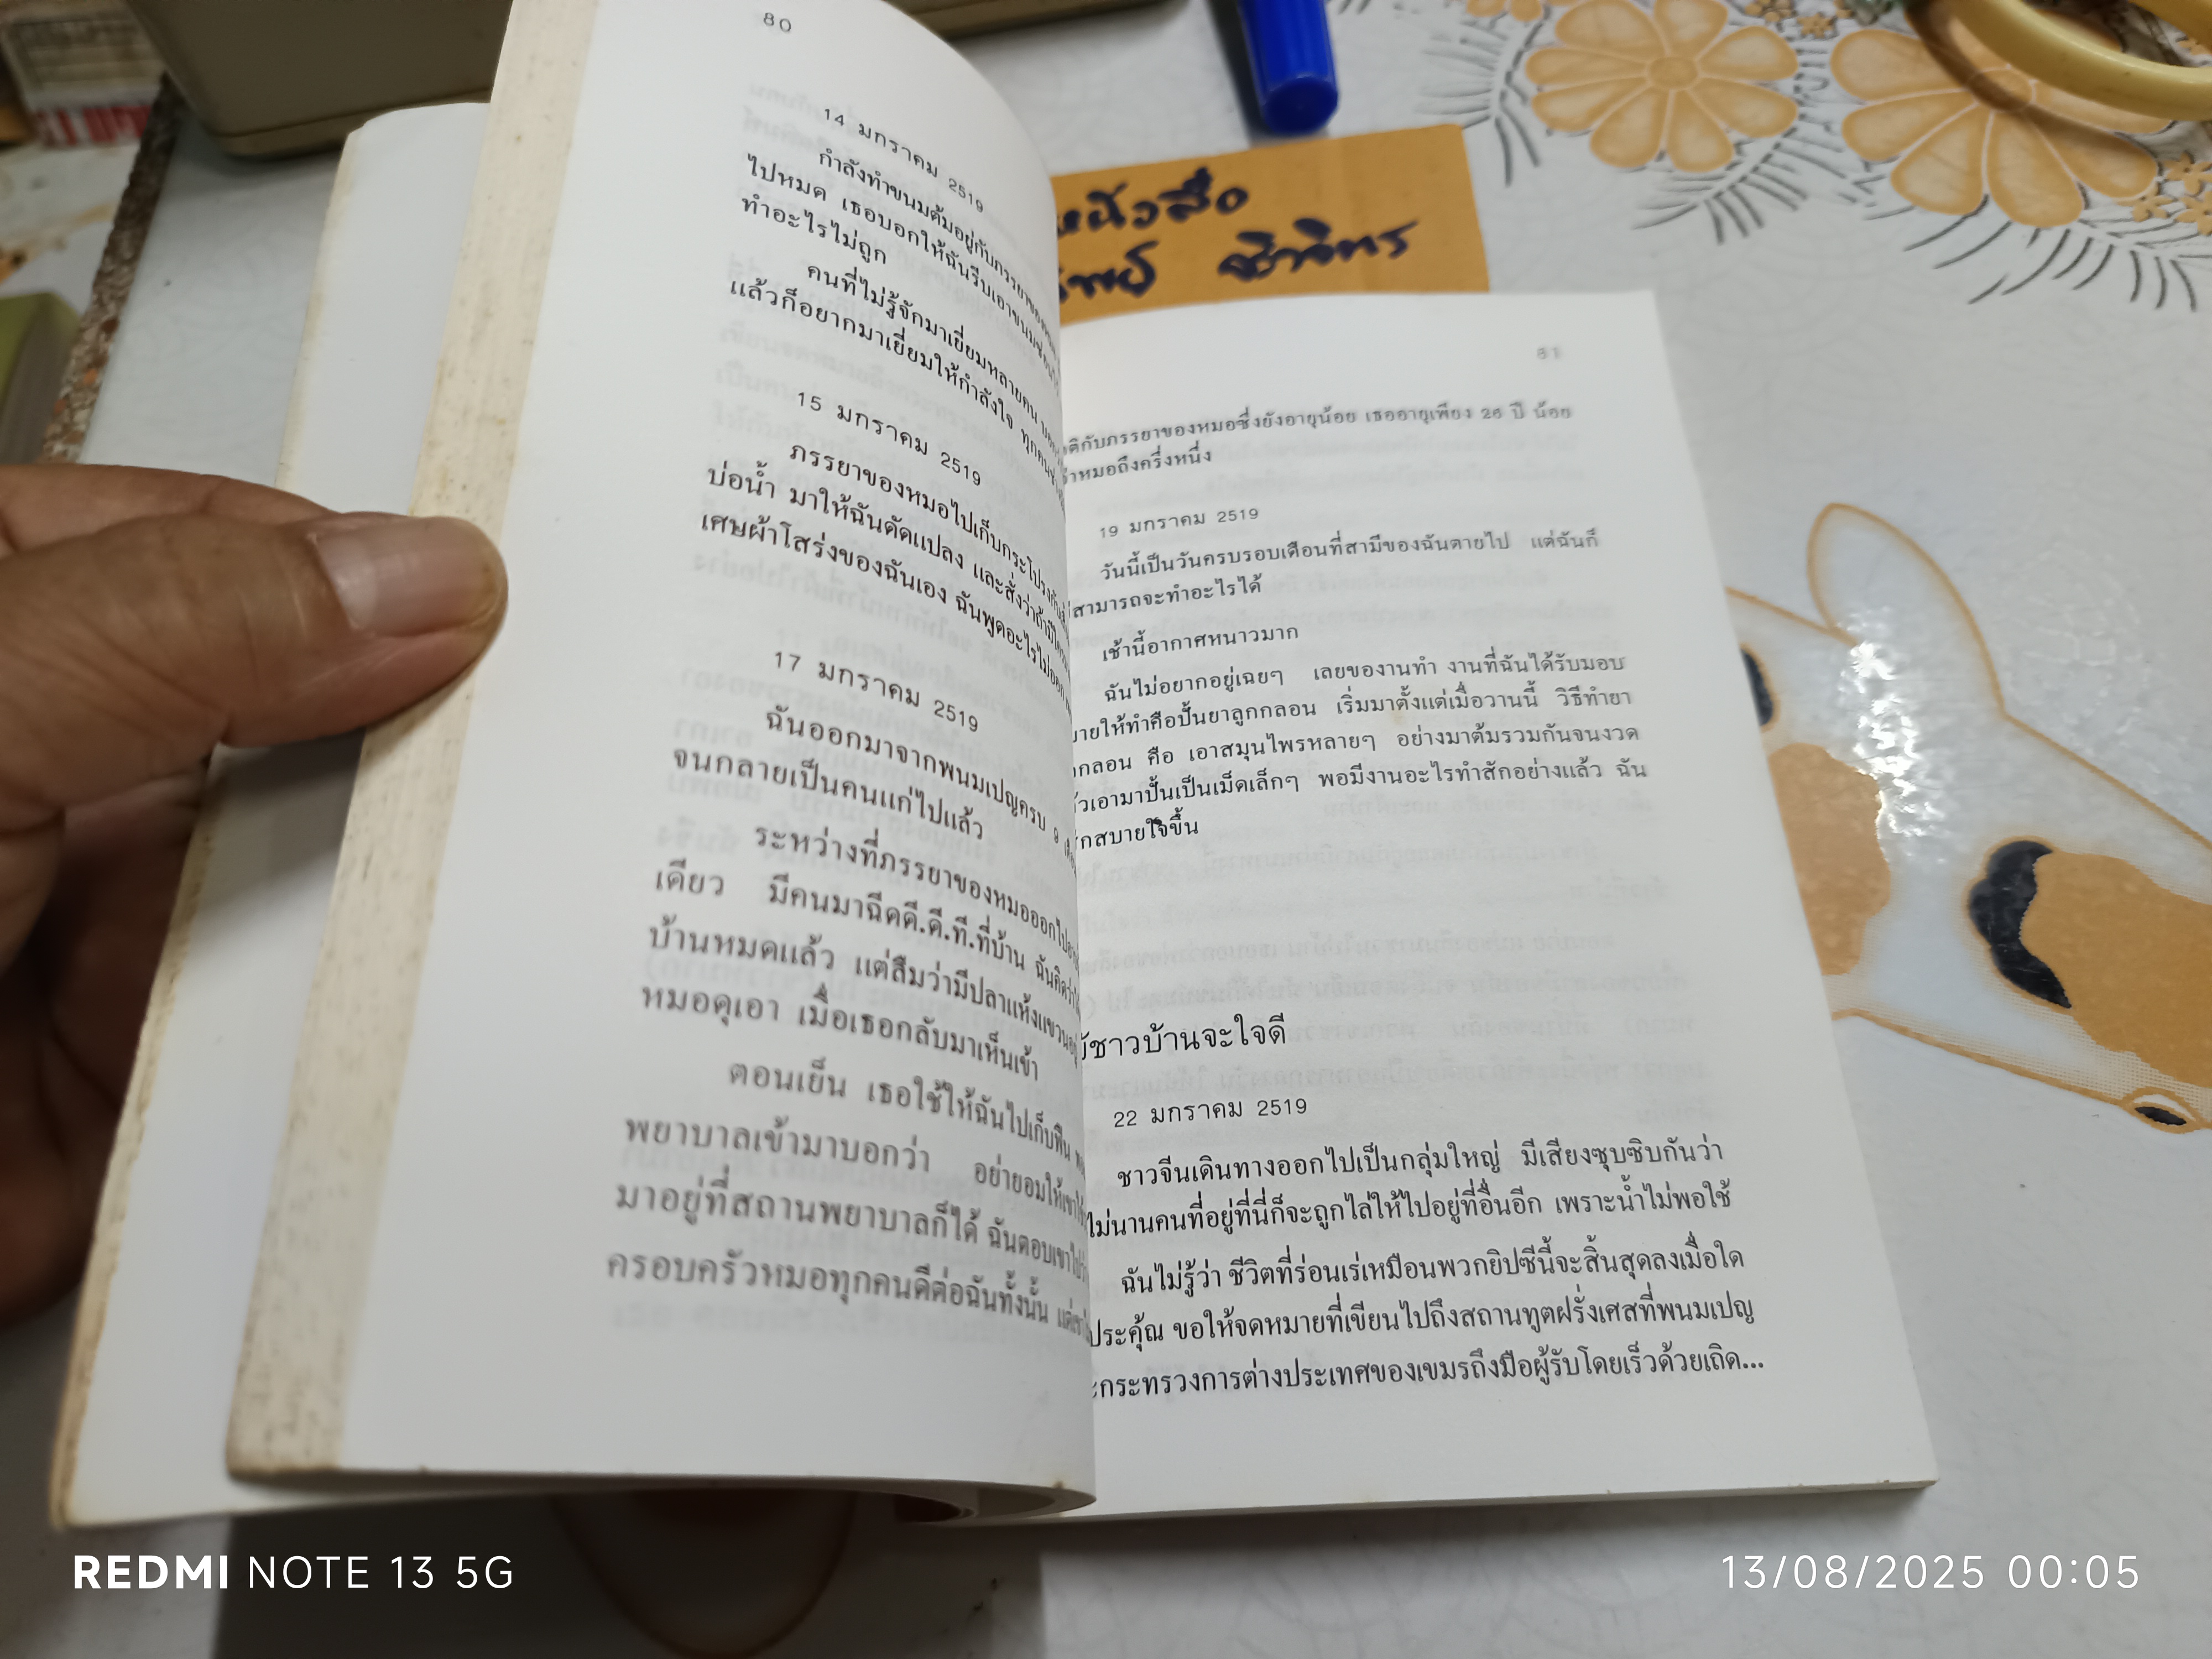 80
14 มกราคม 2519
กำลังทำขนมต้มอยู่กับภรรยาของหมอ
ไปหมด เธอบอกให้ฉันรีบเอาขนมซ่อน
ทำอะไรไม่ถูก
คนที่ไม่รู้จักมาเยี่ยมหลายคน
แล้วก็อยากมาเยี่ยมให้กำลังใจ ทุกคน
15 มกราคม 2519
ภรรยาของหมอไปเก็บกระโปรง
บ่อน้ำ มาให้ฉันดัดแปลง และสั่งว่าถ้ามีใคร
เศษผ้าโสร่งของฉันเอง ฉันพูดอะไรไม่ออก
17 มกราคม 2519
ฉันออกมาจากพนมเปญครบ 9
จนกลายเป็นคนแก่ไปแล้ว
ระหว่างที่ภรรยาของหมอออกไป
เดียว มีคนมาฉีดดี.ดี.ที.ที่บ้าน ฉันคิดว่า
บ้านหมดแล้ว แต่ลืมว่ามีปลาแห้งแขวนอยู่
หมอดุเอา เมื่อเธอกลับมาเห็นเข้า
ตอนเย็น เธอใช้ให้ฉันไปเก็บฟืน
พยาบาลเข้ามาบอกว่า อย่ายอมให้เขา
มาอยู่ที่สถานพยาบาลก็ได้ ฉันตอบเขาไปว่า
ครอบครัวหมอทุกคนดีต่อฉันทั้งนั้น
หนังสือ
81
กับภรรยาของหมอซึ่งยังอายุน้อย เธออายุเพียง 26 ปี น้อย
หมอถึงครึ่งหนึ่ง
19 มกราคม 2519
วันนี้เป็นวันครบรอบเดือนที่สามีของฉันตายไป แต่ฉันก็
สามารถจะทำอะไรได้
เช้านี้อากาศหนาวมาก
ฉันไม่อยากอยู่เฉยๆ เลยของานทำ งานที่ฉันได้รับมอบ
ายให้ทำคือปั้นยาลูกกลอน เริ่มมาตั้งแต่เมื่อวานนี้ วิธีทำยา
กลอน คือ เอาสมุนไพรหลายๆ อย่างมาต้มรวมกันจนงวด
เอามาปั้นเป็นเม็ดเล็กๆ พอมีงานอะไรทำสักอย่างแล้ว ฉัน
สบายใจขึ้น
ชาวบ้านจะใจดี
22 มกราคม 2519
ชาวจีนเดินทางออกไปเป็นกลุ่มใหญ่ มีเสียงซุบซิบกันว่า
ไม่นานคนที่อยู่ที่นี่ก็จะถูกไล่ให้ไปอยู่ที่อื่นอีก เพราะน้ำไม่พอใช้
ฉันไม่รู้ว่า ชีวิตที่ร่อนเร่เหมือนพวกยิปซีนี้จะสิ้นสุดลงเมื่อใด
ประคุ้ณ ขอให้จดหมายที่เขียนไปถึงสถานทูตฝรั่งเศสที่พนมเปญ
กระทรวงการต่างประเทศของเขมรถึงมือผู้รับโดยเร็วด้วยเถิด...
REDMI NOTE 13 5G
13/08/2025 00:05